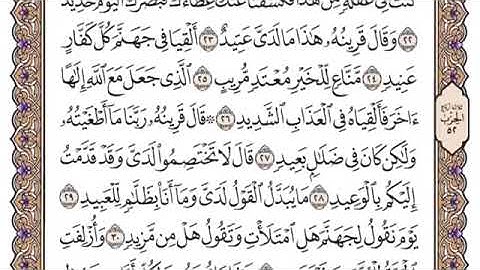 كُنتَ فِي غَفْلَةٍ مِّنْ هَٰذَا فَكَشَفْنَا عَنكَ غِطَآءَكَ فَبَصَرُكَ ٱلْيَوْمَ حَدِيدٌ
٢٢ وَقَالَ قَرِينُهُۥ هَٰذَا مَا لَدَىَّ عَتِيدٌ ٢٣ أَلْقِيَا فِى جَهَنَّمَ كُلَّ كَفَّارٍ
عَنِيدٍ ٢٤ مَّنَّاعٍ لِّلْخَيْرِ مُعْتَدٍ مُّرِيبٍ ٢٥ ٱلَّذِى جَعَلَ مَعَ ٱللَّهِ إِلَٰهًا
ءَاخَرَ فَأَلْقِيَاهُ فِى ٱلْعَذَابِ ٱلشَّدِيدِ ٢٦ ۞ قَالَ قَرِينُهُۥ رَبَّنَا مَآ أَطْغَيْتُهُۥ
وَلَٰكِن كَانَ فِى ضَلَٰلٍۭ بَعِيدٍ ٢٧ قَالَ لَا تَخْتَصِمُوا۟ لَدَىَّ وَقَدْ قَدَّمْتُ
إِلَيْكُم بِٱلْوَعِيدِ ٢٨ مَا يُبَدَّلُ ٱلْقَوْلُ لَدَىَّ وَمَآ أَنَا۠ بِظَلَّٰمٍ لِّلْعَبِيدِ
٢٩ يَوْمَ نَقُولُ لِجَهَنَّمَ هَلِ ٱمْتَلَأْتِ وَتَقُولُ هَلْ مِن مَّزِيدٍ ٣٠ وَأُزْلِفَتِ
الحزب
٥٢